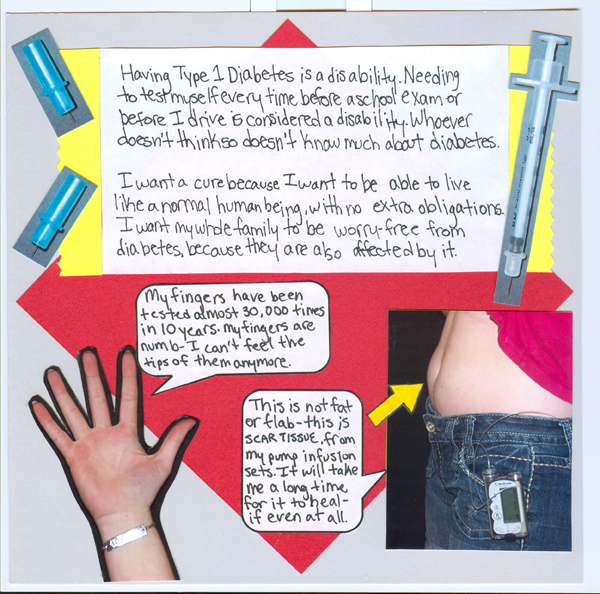 Having Type 1 Diabetes is a disability. Needing
to test myself every time before a school exam or
before I drive is considered a disability. Whoever
doesn't think so doesn't know much about diabetes.
I want a cure because I want to be able to live
like a normal human being, with no extra obligations.
I want my whole family to be worry-free from
diabetes, because they are also affected by it.
My fingers have been
tested almost 30,000 times
in 10 years. My fingers are
numb- I can't feel the
tips of them anymore.
This is not fat
or flab- this is
SCAR TISSUE, from
my pump infusion
sets. It will take
me a long time
for it to heal-
if even at all.